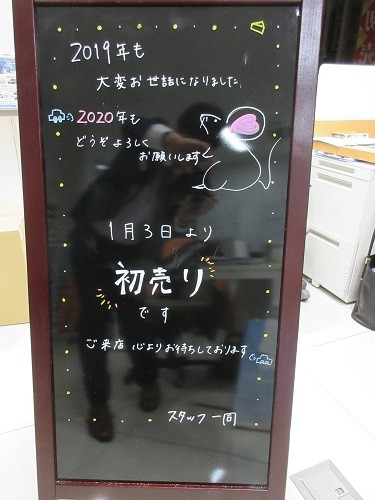 2019年も
大変お世話になりました
2020年も
どうぞよろしく
お願いします
1月3日より
初売り
です
ご来店 心よりお待ちしております
スタッフ一同